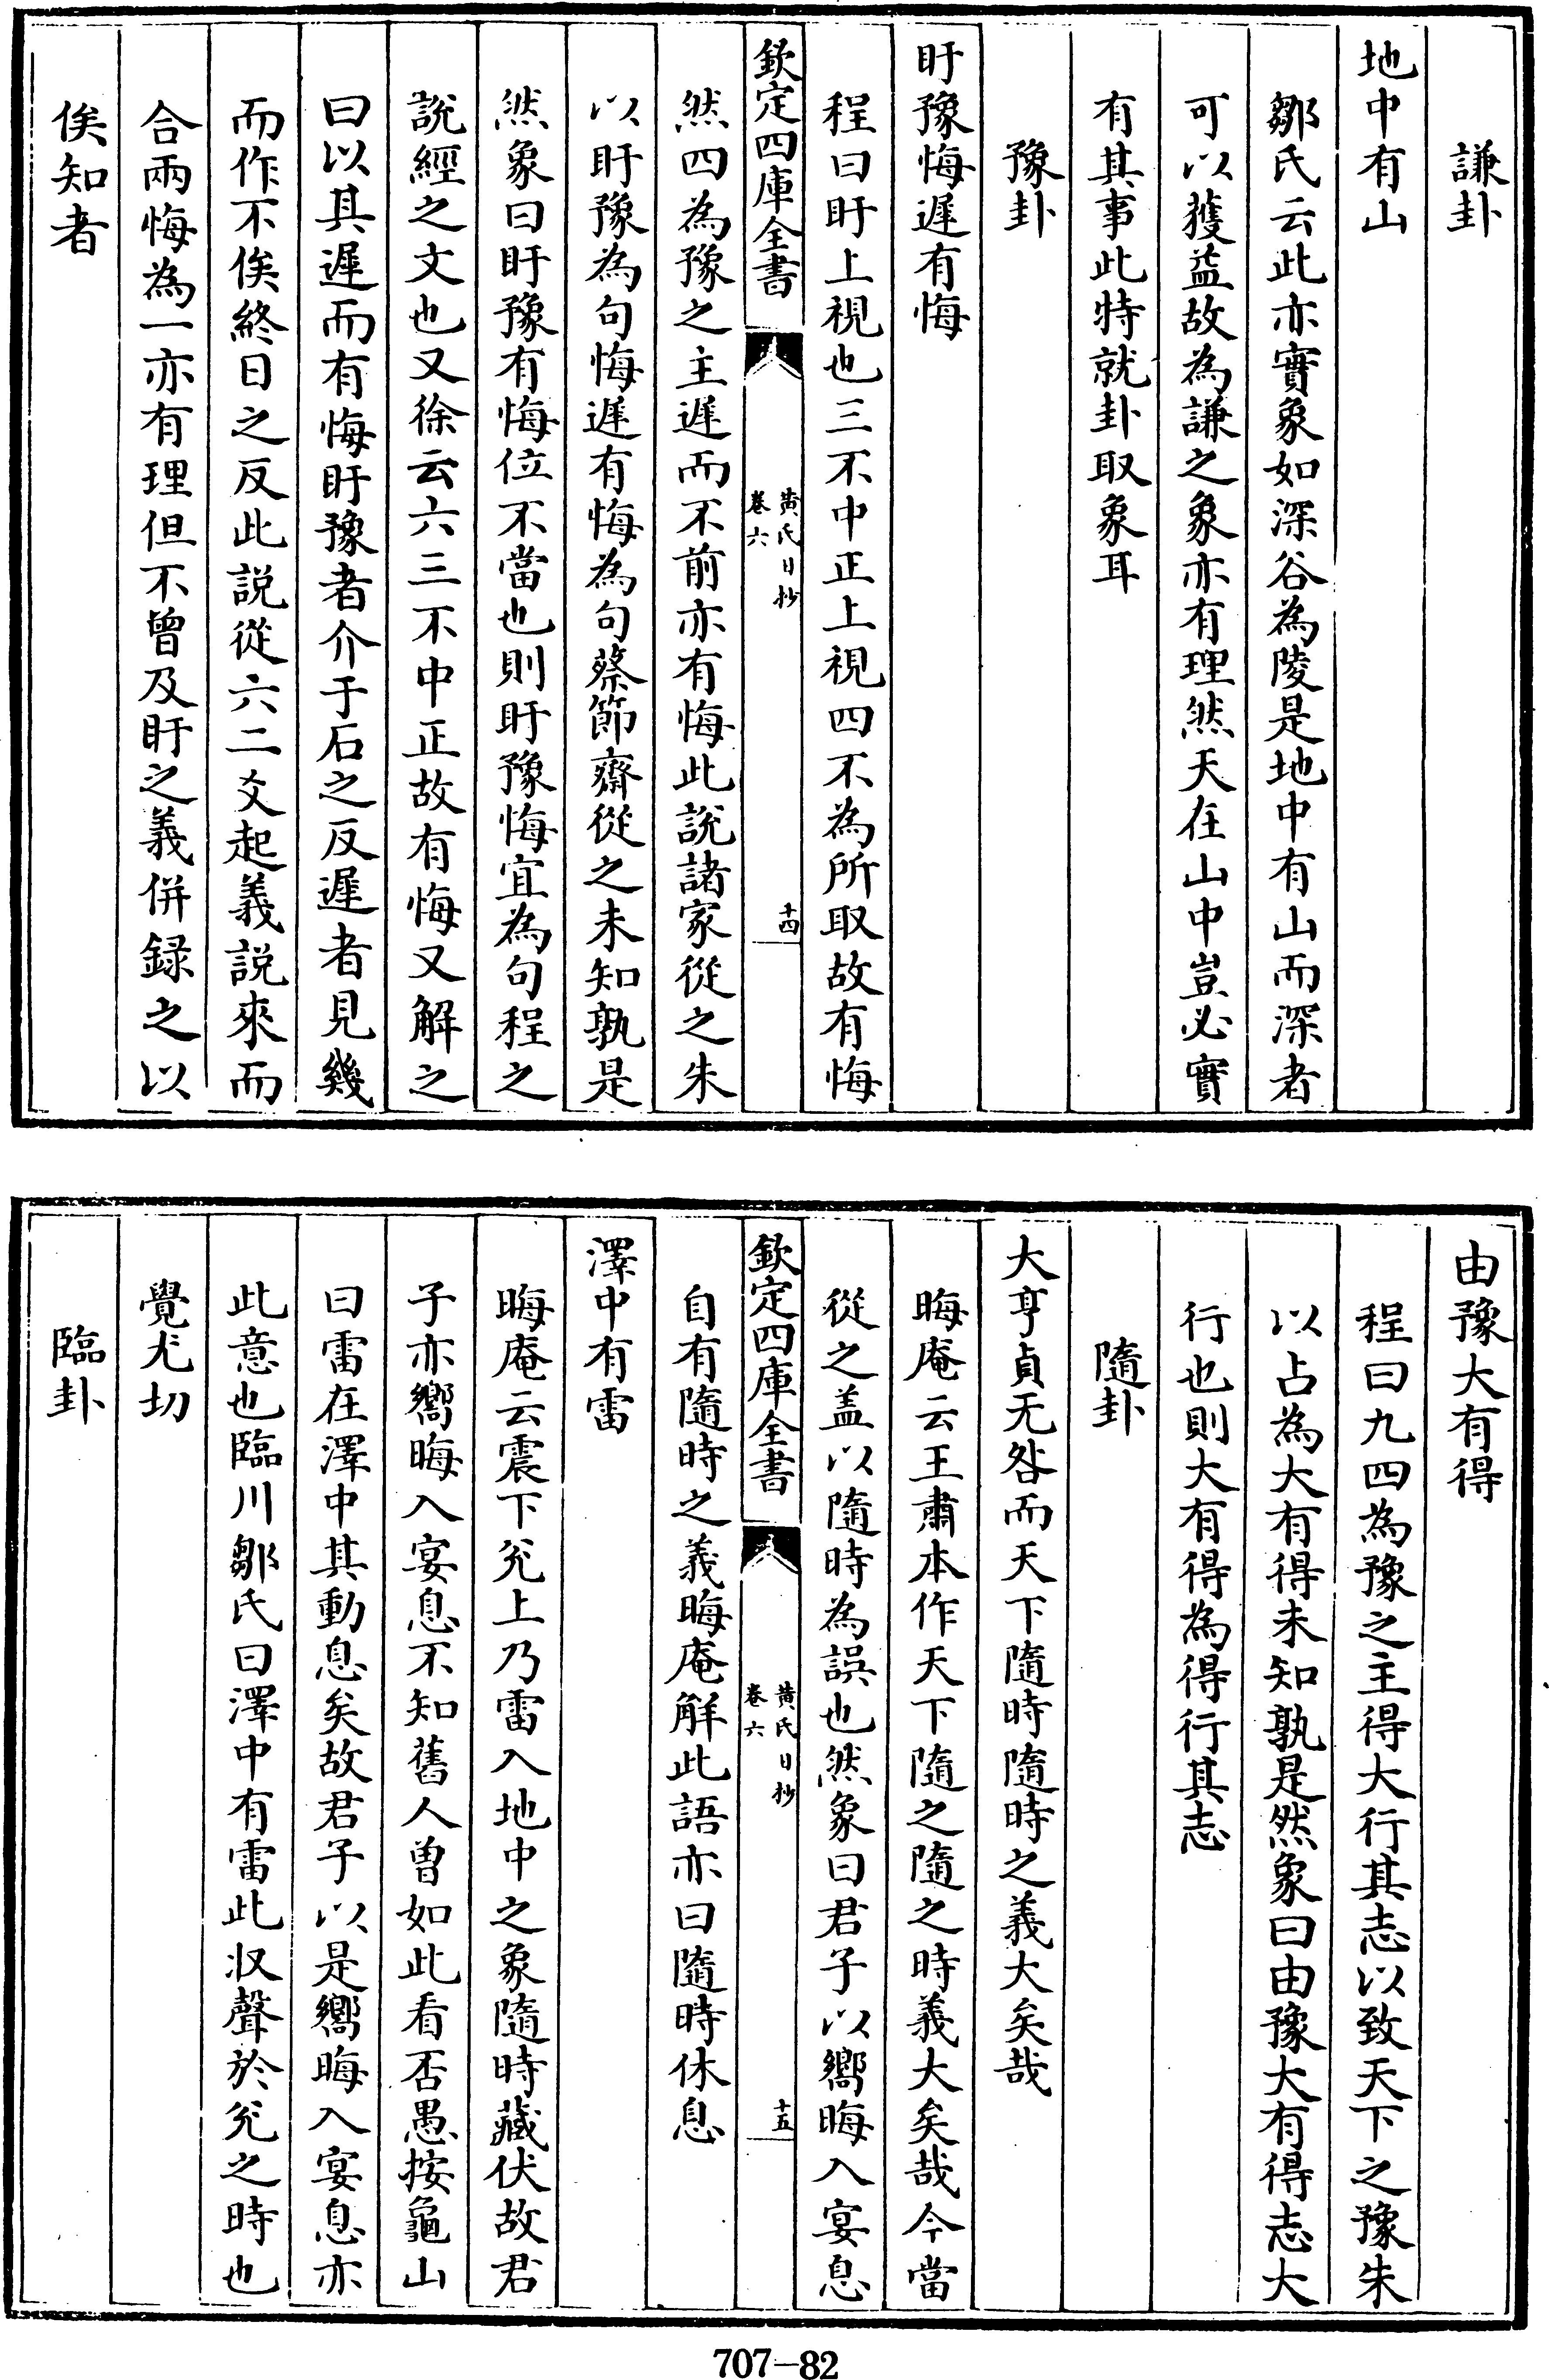 謙卦
地中有山
鄒氏云此亦實象如深谷為陵是地中有山而深者
可以獲益故為謙之象亦有理然天在山中豈必實
有其事此特就卦取象耳
豫卦
盱豫悔遲有悔
程曰盱上視也三不中正上視四不為所取故有悔
欽定四庫全書
黄氏日抄
卷六
十四
然四為豫之主遲而不前亦有悔此說諸家從之朱
以盱豫為句悔遲有悔為句蔡節齋從之未知孰是
然象曰盱豫有悔位不當也則盱豫悔宜為句程之
說經之文也又徐云六三不中正故有悔又解之
曰以其遲而有悔盱豫者介于石之反遲者見幾
而作不俟終日之反此説從六二爻起義說來而
合兩悔為一亦有理但不曾及盱之義併録之以
俟知者
由豫大有得
程曰九四為豫之主得大行其志以致天下之豫朱
以占為大有得未知孰是然象曰由豫大有得志大
行也則大有得為得行其志
隨卦
大亨貞无咎而天下隨時隨時之義大矣哉
晦庵云王肅本作天下隨之隨之時義大矣哉今當
從之盖以隨時為誤也然象曰君子以嚮晦入宴息
欽定四庫全書
黄氏日抄
卷六
十五
自有隨時之義晦庵解此語亦曰隨時休息
澤中有雷
晦庵云震下兊上乃雷入地中之象隨時藏伏故君
子亦嚮晦入宴息不知舊人曽如此看否愚按龜山
曰雷在澤中其動息矣故君子以是嚮晦入宴息亦
此意也臨川鄒氏曰澤中有雷此収聲於兊之時也
覺尤切
臨卦
707-82